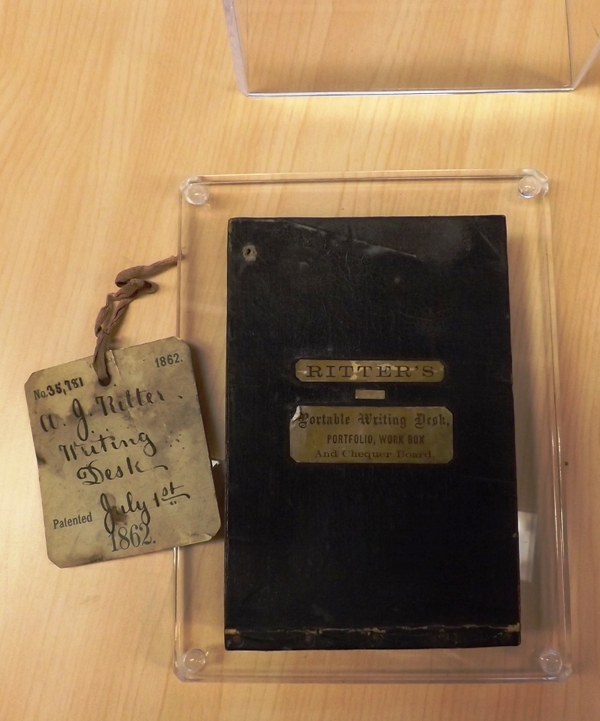 No. 35,781
1862.
A. J. Ritter
Writing
Desk
Patented July 1st
1862.
RITTER'S
Portable Writing Desk,
PORTFOLIO, WORK BOX
And Chequer Board.